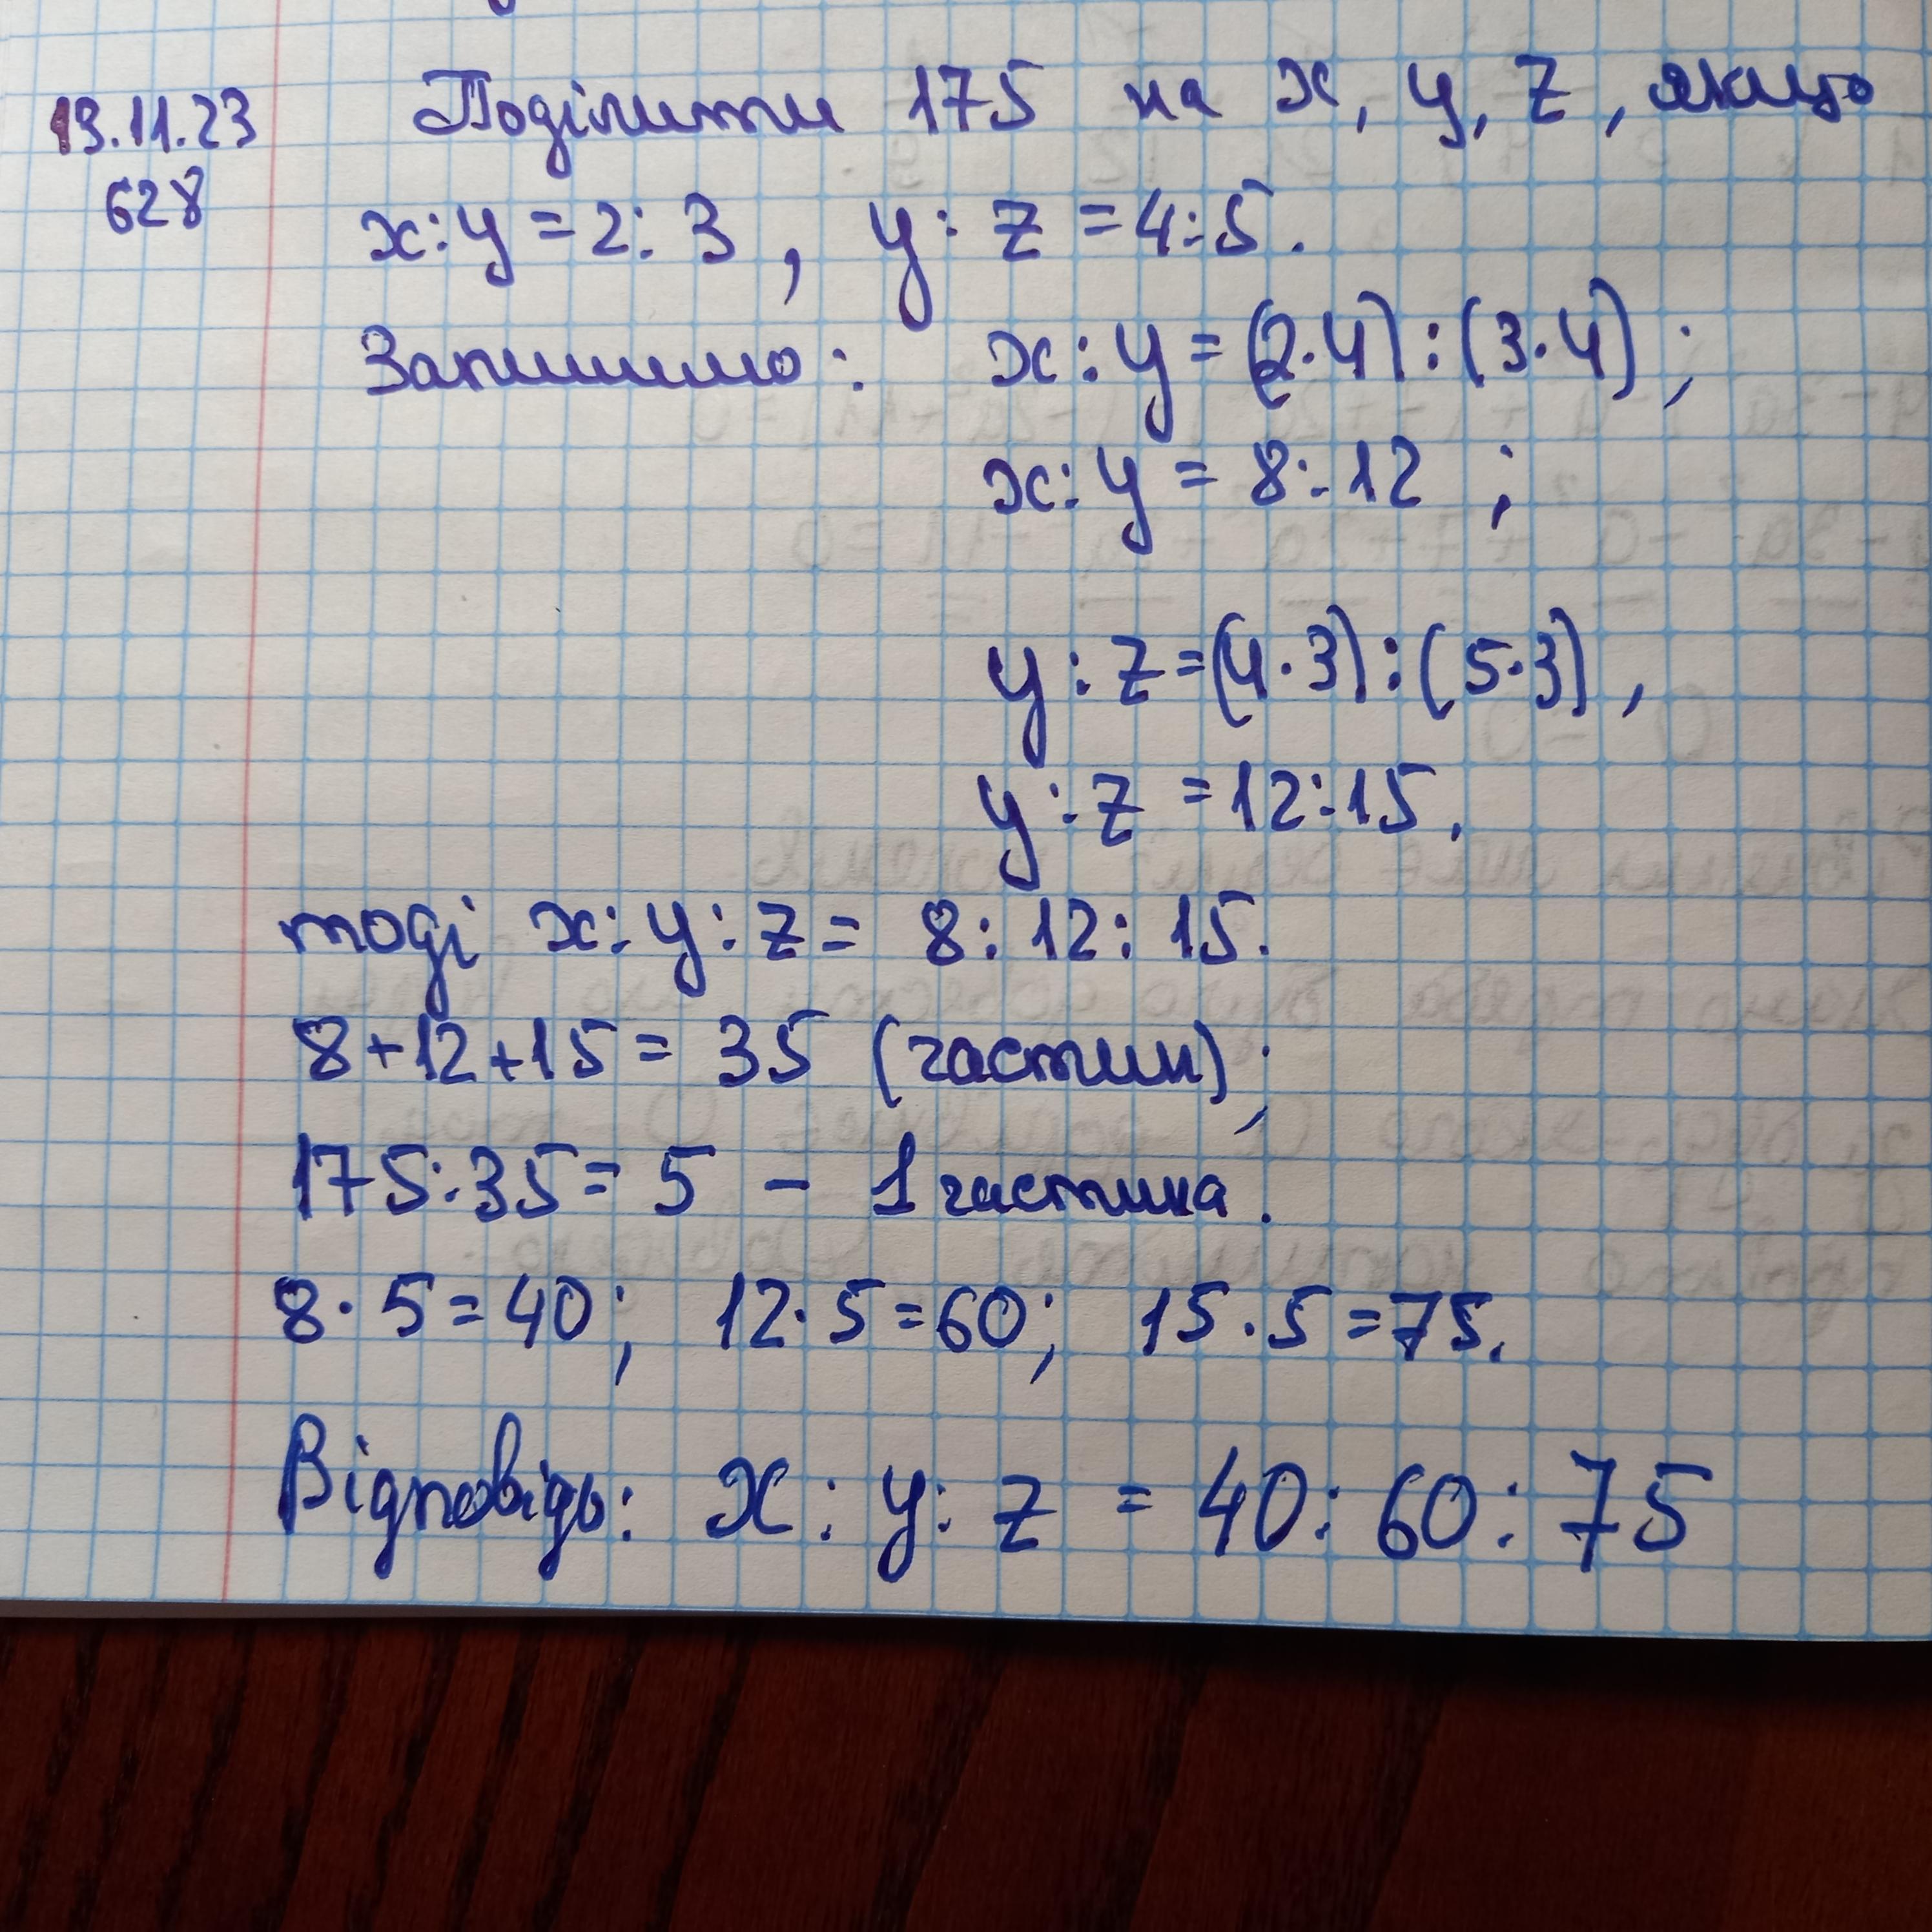 13.11.23 Поділити 175 на x, y, z, якщо
628
x:y=2:3, y:z=4:5.
Запишимо: x:y=(2·4):(3·4);
x:y=8:12;
y:z=(4·3):(5·3),
y:z=12:15.
тоді x:y:z=8:12:15.
8+12+15=35 (частин);
175:35=5 – 1 частина.
8·5=40; 12·5=60; 15·5=75.
Відповідь: x:y:z=40:60:75